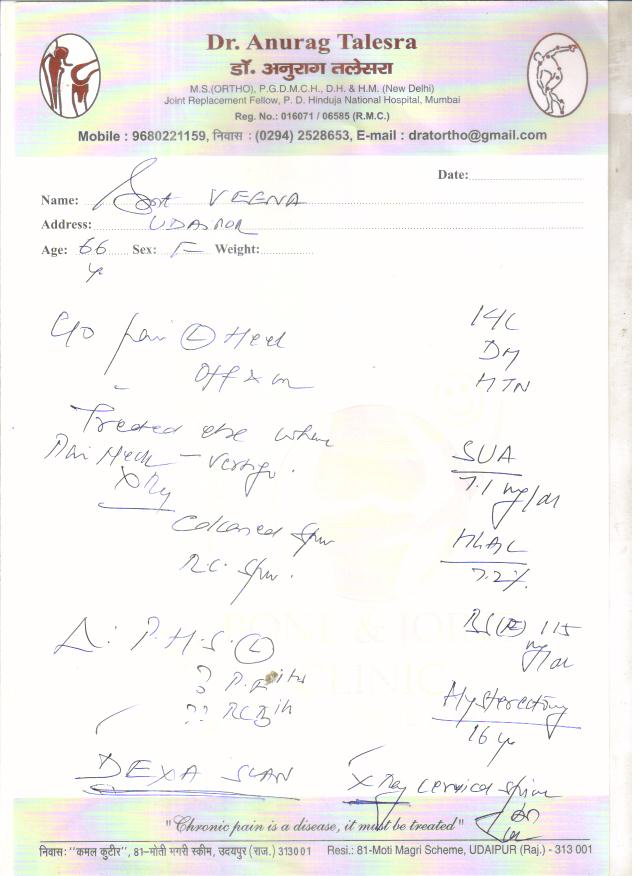 Dr. Anurag Talesra
डॉ. अनुराग तलेसरा
M.S.(ORTHO), P.G.D.M.C.H., D.H. & H.M. (New Delhi)
Joint Replacement Fellow, P. D. Hinduja National Hospital, Mumbai
Reg. No.: 016071 / 06585 (R.M.C.)
Mobile : 9680221159, निवास : (0294) 2528653, E-mail : dratortho@gmail.com
Date:
Name: Smt VEENA
Address: UDAIPUR
Age: 66 yr Sex: F Weight:
C/o pain (L) Heel
off & on
DM
HTN
Treated else where
Pain Neck - Vertigo.
X Ray
Calcaneal Spur
R.C. Spur.
SUA
7.1 mg/dl
HbA1C
7.2%
BS(F) 115
mg/dl
Δ: P.H.S. (L)
? P.F itis
?? RCB itis
Hysterectomy
16 yr
DEXA SCAN
X Ray cervical spine
BONE & JOINT
CLINIC
"Chronic pain is a disease, it must be treated"
निवास: "कमल कुटीर", 81-मोती मगरी स्कीम, उदयपुर (राज.) 313001 Resi.: 81-Moti Magri Scheme, UDAIPUR (Raj.) - 313 001